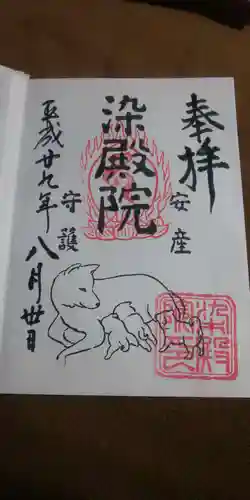 奉拝
安産
染殿院
守護
平成廿九年八月廿日
染殿